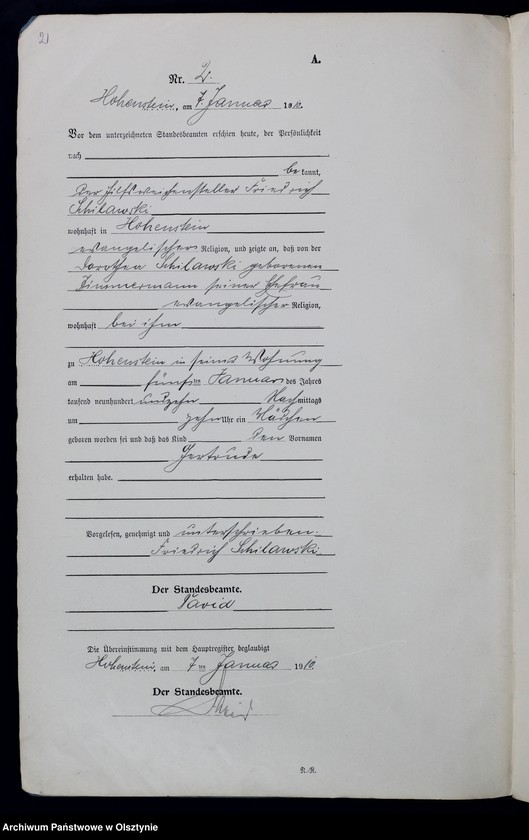 2
A.
Nr. 2.
Hohenstein, am 7 Januar 1910.
Vor dem unterzeichneten Standesbeamten erschien heute, der Persönlichkeit
nach
be kannt,
der Hilfsweichensteller Friedrich
Schilawski
wohnhaft in Hohenstein
evangelischer Religion, und zeigte an, daß von der
Dorothea Schilawski geborenen
Zimmermann seiner Ehefrau
evangelischer Religion,
wohnhaft bei ihm
zu Hohenstein in seiner Wohnung
am fünften Januar des Jahres
tausend neunhundert undzehn Nachmittags
um zehn Uhr ein Mädchen
geboren worden sei und daß das Kind den Vornamen
Gertrude
erhalten habe.
Vorgelesen, genehmigt und unterschrieben.
Friedrich Schilawski
Der Standesbeamte.
Die Übereinstimmung mit dem Hauptregister beglaubigt
Hohenstein, am 7 ten Januar 1910.
Der Standesbeamte.
Archiwum Państwowe w Olsztynie